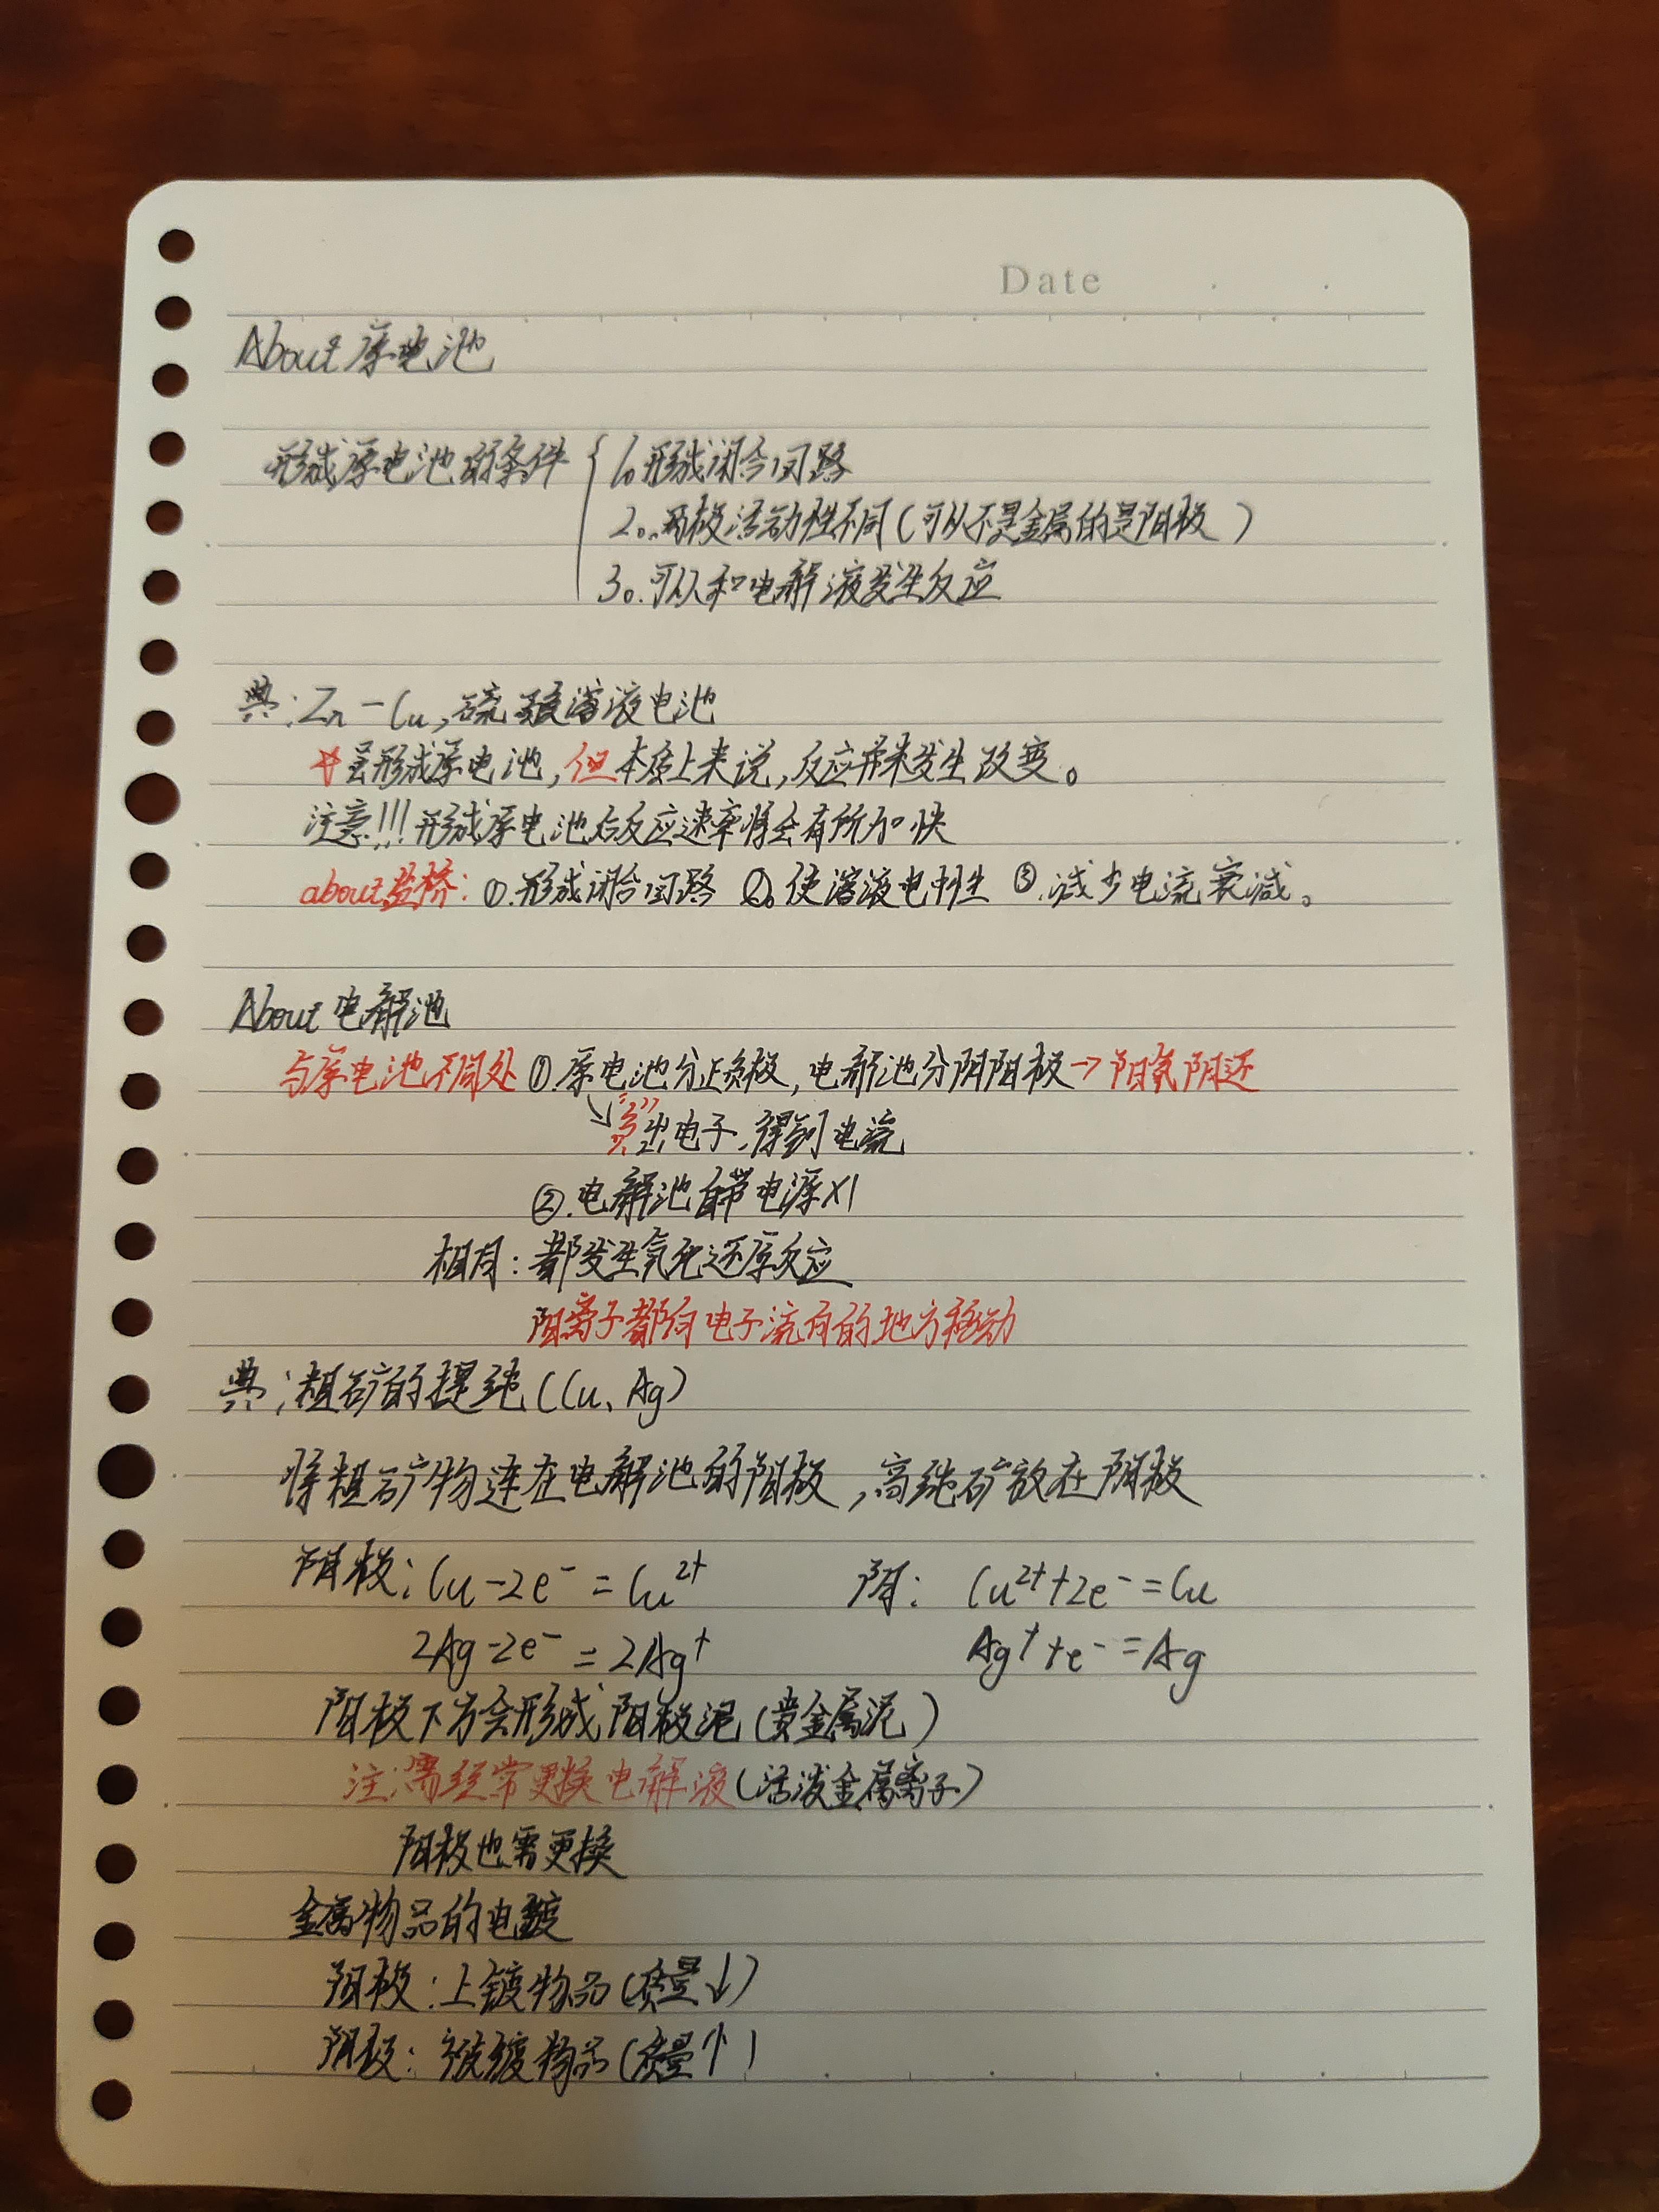 Date
About 原电池
形成原电池的条件 { 1。形成闭合回路
2。两极活动性不同(可以不是金属的是阳极)
3。可以和电解液发生反应
典:Zn-Cu,硫酸溶液电池
虽形成原电池,但本质上来说,反应并未发生改变。
注意!!!形成原电池后反应速率将会有所加快
about盐桥:①.形成闭合回路 ②。使溶液电中性 ③.减少电流衰减。
About 电解池
与原电池不同处 ①.原电池分正负极,电解池分阴阳极→阳氧阴还
“负”出电子、得到电流
②.电解池自带电源×1
相同:都发生氧化还原反应
阳离子都向电子流向的地方移动
典:粗矿的提纯(Cu、Ag)
将粗矿物连在电解池的阳极,高纯矿放在阴极
阳极:Cu-2e⁻=Cu²⁺ 阴: Cu²⁺+2e⁻=Cu
2Ag-2e⁻=2Ag⁺ Ag⁺+e⁻=Ag
阳极下方会形成阳极泥(贵金属泥)
注:需经常更换电解液(活泼金属离子)
阳极也需更换
金属物品的电镀
阳极:上镀物品(质量↓)
阴极:被镀物品(质量↑)